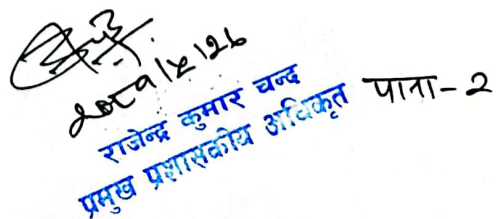 राजेन्द्र कुमार चन्द
प्रमुख प्रशासकीय अधिकृत पाना-२